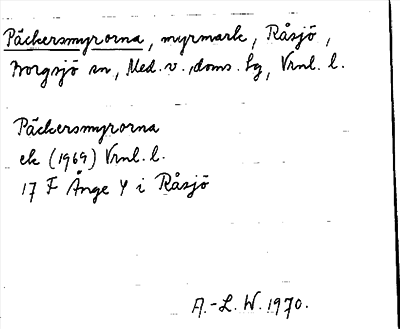 Päckersmyrorna, myrmark, Råsjö,
Borgsjö sn, Med. v., doms. hg, Vrnl. l.
Päckersmyrorna
ek (1969) Vrnl. l.
17 F Ånge Y i Råsjö
A.-L. W. 1970.